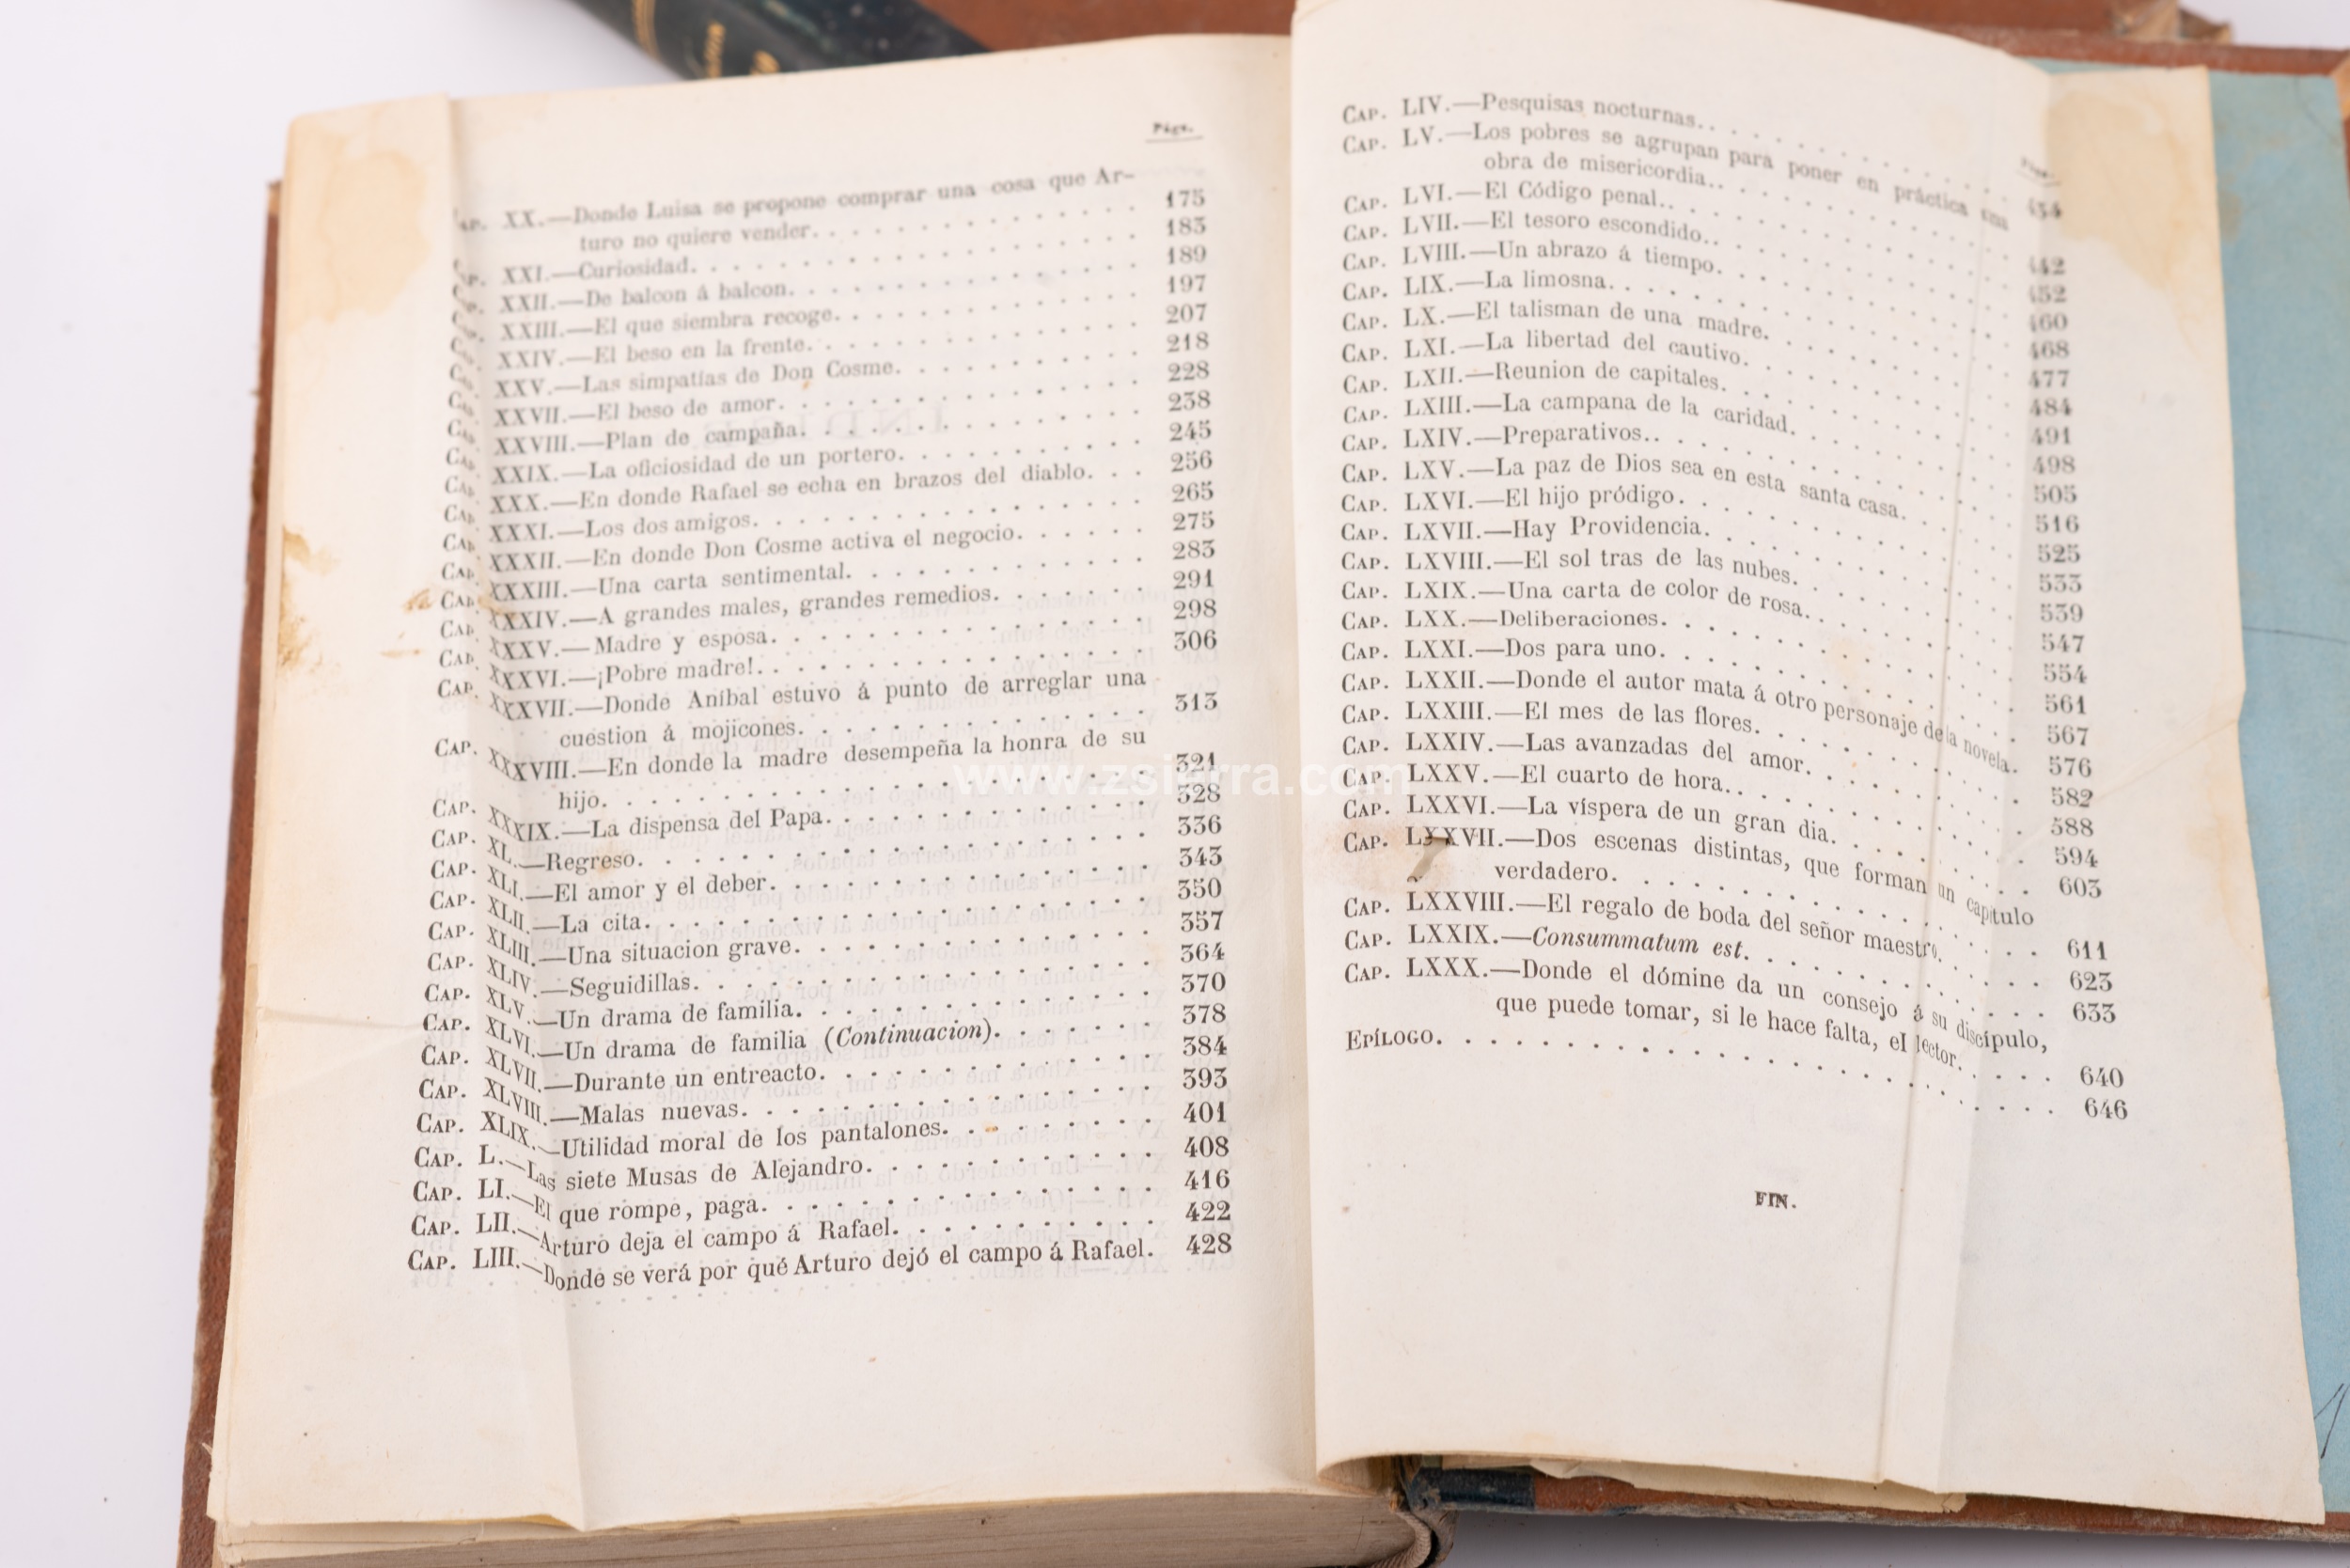 Págs.
Cap. XX.—Donde Luisa se propone comprar una cosa que Ar-
turo no quiere vender. 175
XXI.—Curiosidad. 183
XXII.—De balcon á balcon. 189
XXIII.—El que siembra recoge. 197
XXIV.—El beso en la frente. 207
XXV.—Las simpatías de Don Cosme. 218
XXVII.—El beso de amor. 228
XXVIII.—Plan de campaña. 238
Cap. XXIX.—La oficiosidad de un portero. 245
Cap. XXX.—En donde Rafael se echa en brazos del diablo. 256
Cap. XXXI.—Los dos amigos. 265
Cap. XXXII.—En donde Don Cosme activa el negocio. 275
Cap. XXXIII.—Una carta sentimental. 283
Cap. XXXIV.—A grandes males, grandes remedios. 291
Cap. XXXV.—Madre y esposa. 298
Cap. XXXVI.—¡Pobre madre!. 306
Cap. XXXVII.—Donde Aníbal estuvo á punto de arreglar una
cuestion á mojicones. 313
Cap. XXXVIII.—En donde la madre desempeña la honra de su
hijo. 321
Cap. XXXIX.—La dispensa del Papa. 328
Cap. XL.—Regreso. 336
Cap. XLI.—El amor y el deber. 343
Cap. XLII.—La cita. 350
Cap. XLIII.—Una situacion grave. 357
Cap. XLIV.—Seguidillas. 364
Cap. XLV.—Un drama de familia. 370
Cap. XLVI.—Un drama de familia (Continuacion). 378
Cap. XLVII.—Durante un entreacto. 384
Cap. XLVIII.—Malas nuevas. 393
Cap. XLIX.—Utilidad moral de los pantalones. 401
Cap. L.—Las siete Musas de Alejandro. 408
Cap. LI.—El que rompe, paga. 416
Cap. LII.—Arturo deja el campo á Rafael. 422
Cap. LIII.—Donde se verá por qué Arturo dejó el campo á Rafael. 428
Cap. LIV.—Pesquisas nocturnas. 434
Cap. LV.—Los pobres se agrupan para poner en práctica una
obra de misericordia. 442
Cap. LVI.—El Código penal. 452
Cap. LVII.—El tesoro escondido. 460
Cap. LVIII.—Un abrazo á tiempo. 468
Cap. LIX.—La limosna. 477
Cap. LX.—El talisman de una madre. 484
Cap. LXI.—La libertad del cautivo. 491
Cap. LXII.—Reunion de capitales. 498
Cap. LXIII.—La campana de la caridad. 505
Cap. LXIV.—Preparativos. 516
Cap. LXV.—La paz de Dios sea en esta santa casa. 525
Cap. LXVI.—El hijo pródigo. 533
Cap. LXVII.—Hay Providencia. 539
Cap. LXVIII.—El sol tras de las nubes. 547
Cap. LXIX.—Una carta de color de rosa. 554
Cap. LXX.—Deliberaciones. 561
Cap. LXXI.—Dos para uno. 567
Cap. LXXII.—Donde el autor mata á otro personaje de la novela. 576
Cap. LXXIII.—El mes de las flores. 582
Cap. LXXIV.—Las avanzadas del amor. 588
Cap. LXXV.—El cuarto de hora. 594
Cap. LXXVI.—La víspera de un gran dia. 603
Cap. LXXVII.—Dos escenas distintas, que forman un capítulo
verdadero. 611
Cap. LXXVIII.—El regalo de boda del señor maestro. 623
Cap. LXXIX.—Consummatum est. 633
Cap. LXXX.—Donde el dómine da un consejo á su discípulo,
que puede tomar, si le hace falta, el lector. 640
Epílogo. 646
FIN.
www.zsierra.com